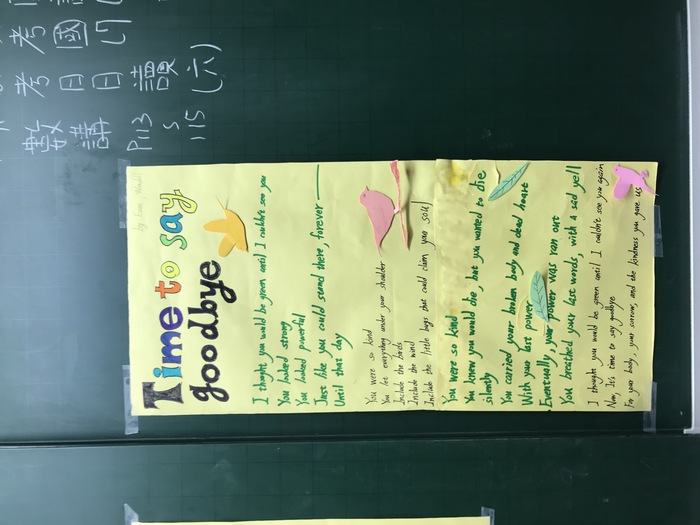 考國
考日日
數講 P113 S 115
課(六)
Time to say
goodbye
I thought you would be green until I couldn't see you
You looked strong
You looked powerful
Just like you could stand there, forever —
Until that day
You were so kind
You let everything under your shoulder
Include the birds
Include the wind
Include the little bugs that could claim your soul
You were so kind
You knew you would die, but you wanted to die
silently
You carried your broken body and dead heart
With your last power
Eventually, your power was ran out
You breathed your last words, with a sad yell
I thought you would be green until I couldn't see you again
Now, It's time to say goodbye
For your body, your sorrow, and the kindness you gave us